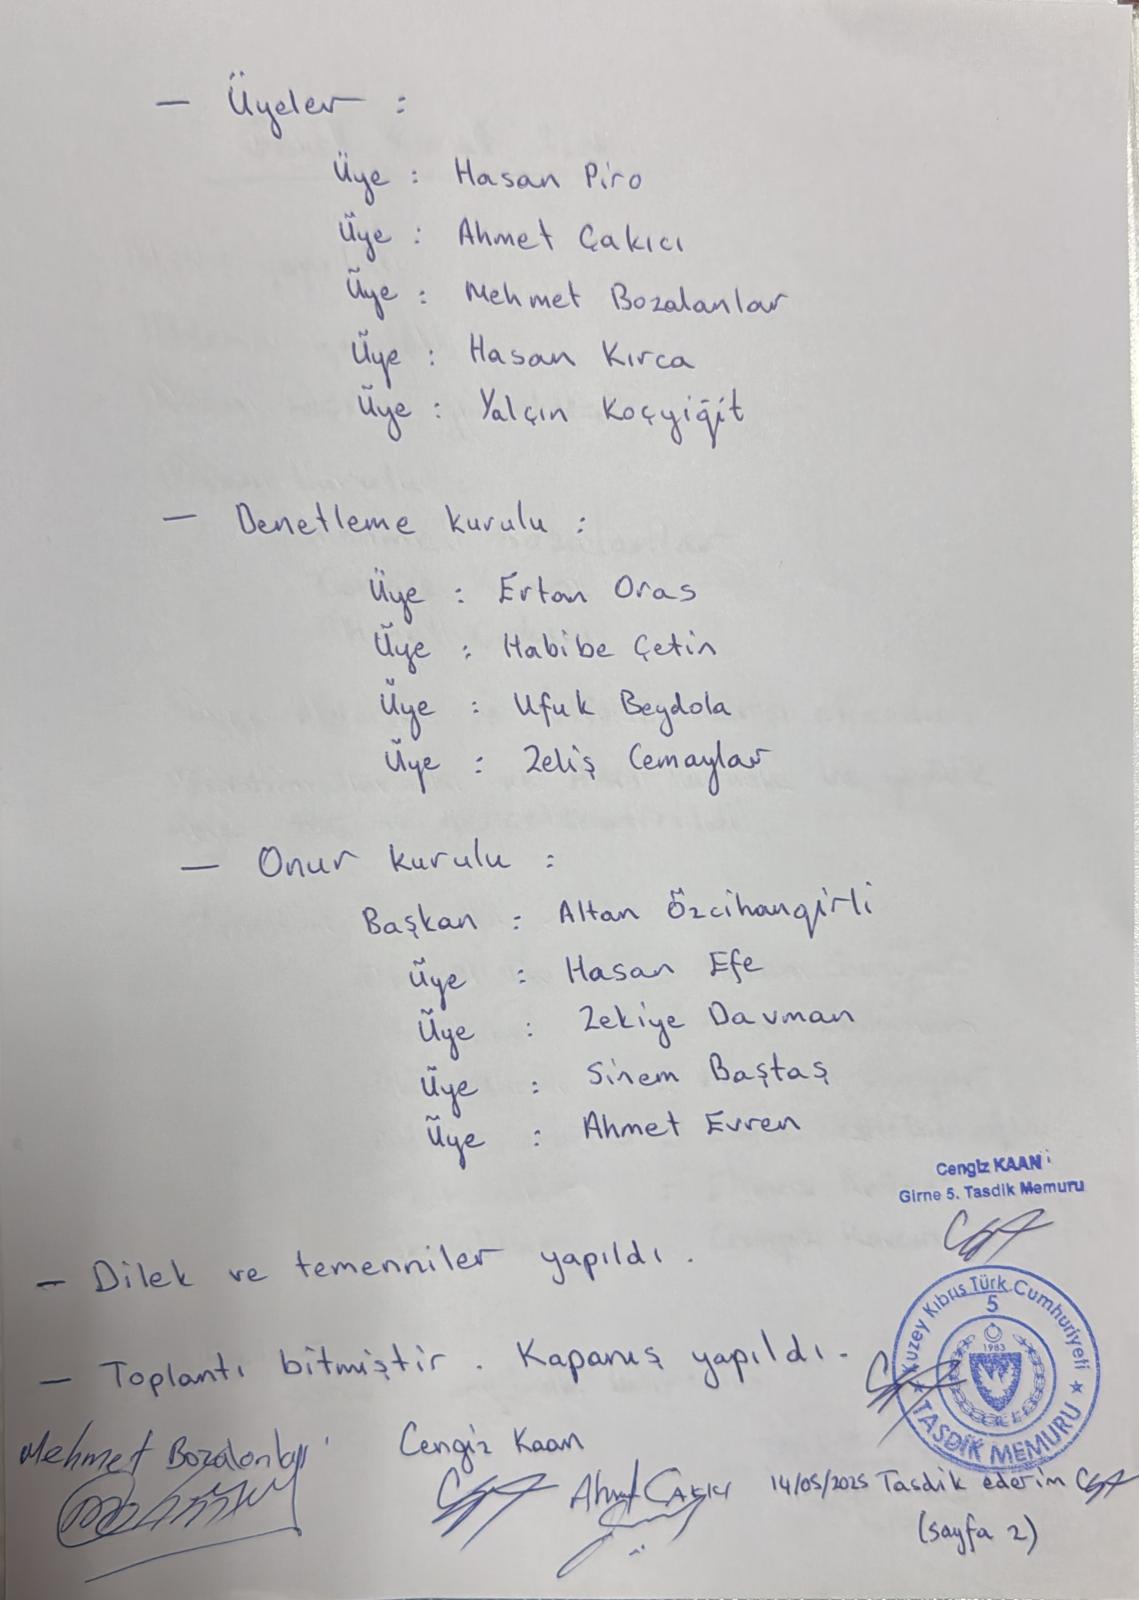 — Üyeler :
Üye : Hasan Piro
Üye : Ahmet Çakıcı
Üye : Mehmet Bozalanlar
Üye : Hasan Kırca
Üye : Yalçın Koçyiğit
— Denetleme kurulu :
Üye : Ertan Oras
Üye : Habibe Çetin
Üye : Ufuk Beydola
Üye : Zeliş Cemaylar
— Onur kurulu :
Başkan : Altan Özcihangirli
Üye : Hasan Efe
Üye : Zekiye Davman
Üye : Sinem Baştaş
Üye : Ahmet Evren
Cengiz KAAN
Girne 5. Tasdik Memuru
— Dilek ve temenniler yapıldı.
Kuzey Kıbrıs Türk Cumhuriyeti
5
1983
★ TASDİK MEMURU ★
— Toplantı bitmiştir. Kapanış yapıldı.
Mehmet Bozalanlar
Cengiz Kaan
Ahmet Çakıcı
14/05/2025 Tasdik ederim
(sayfa 2)